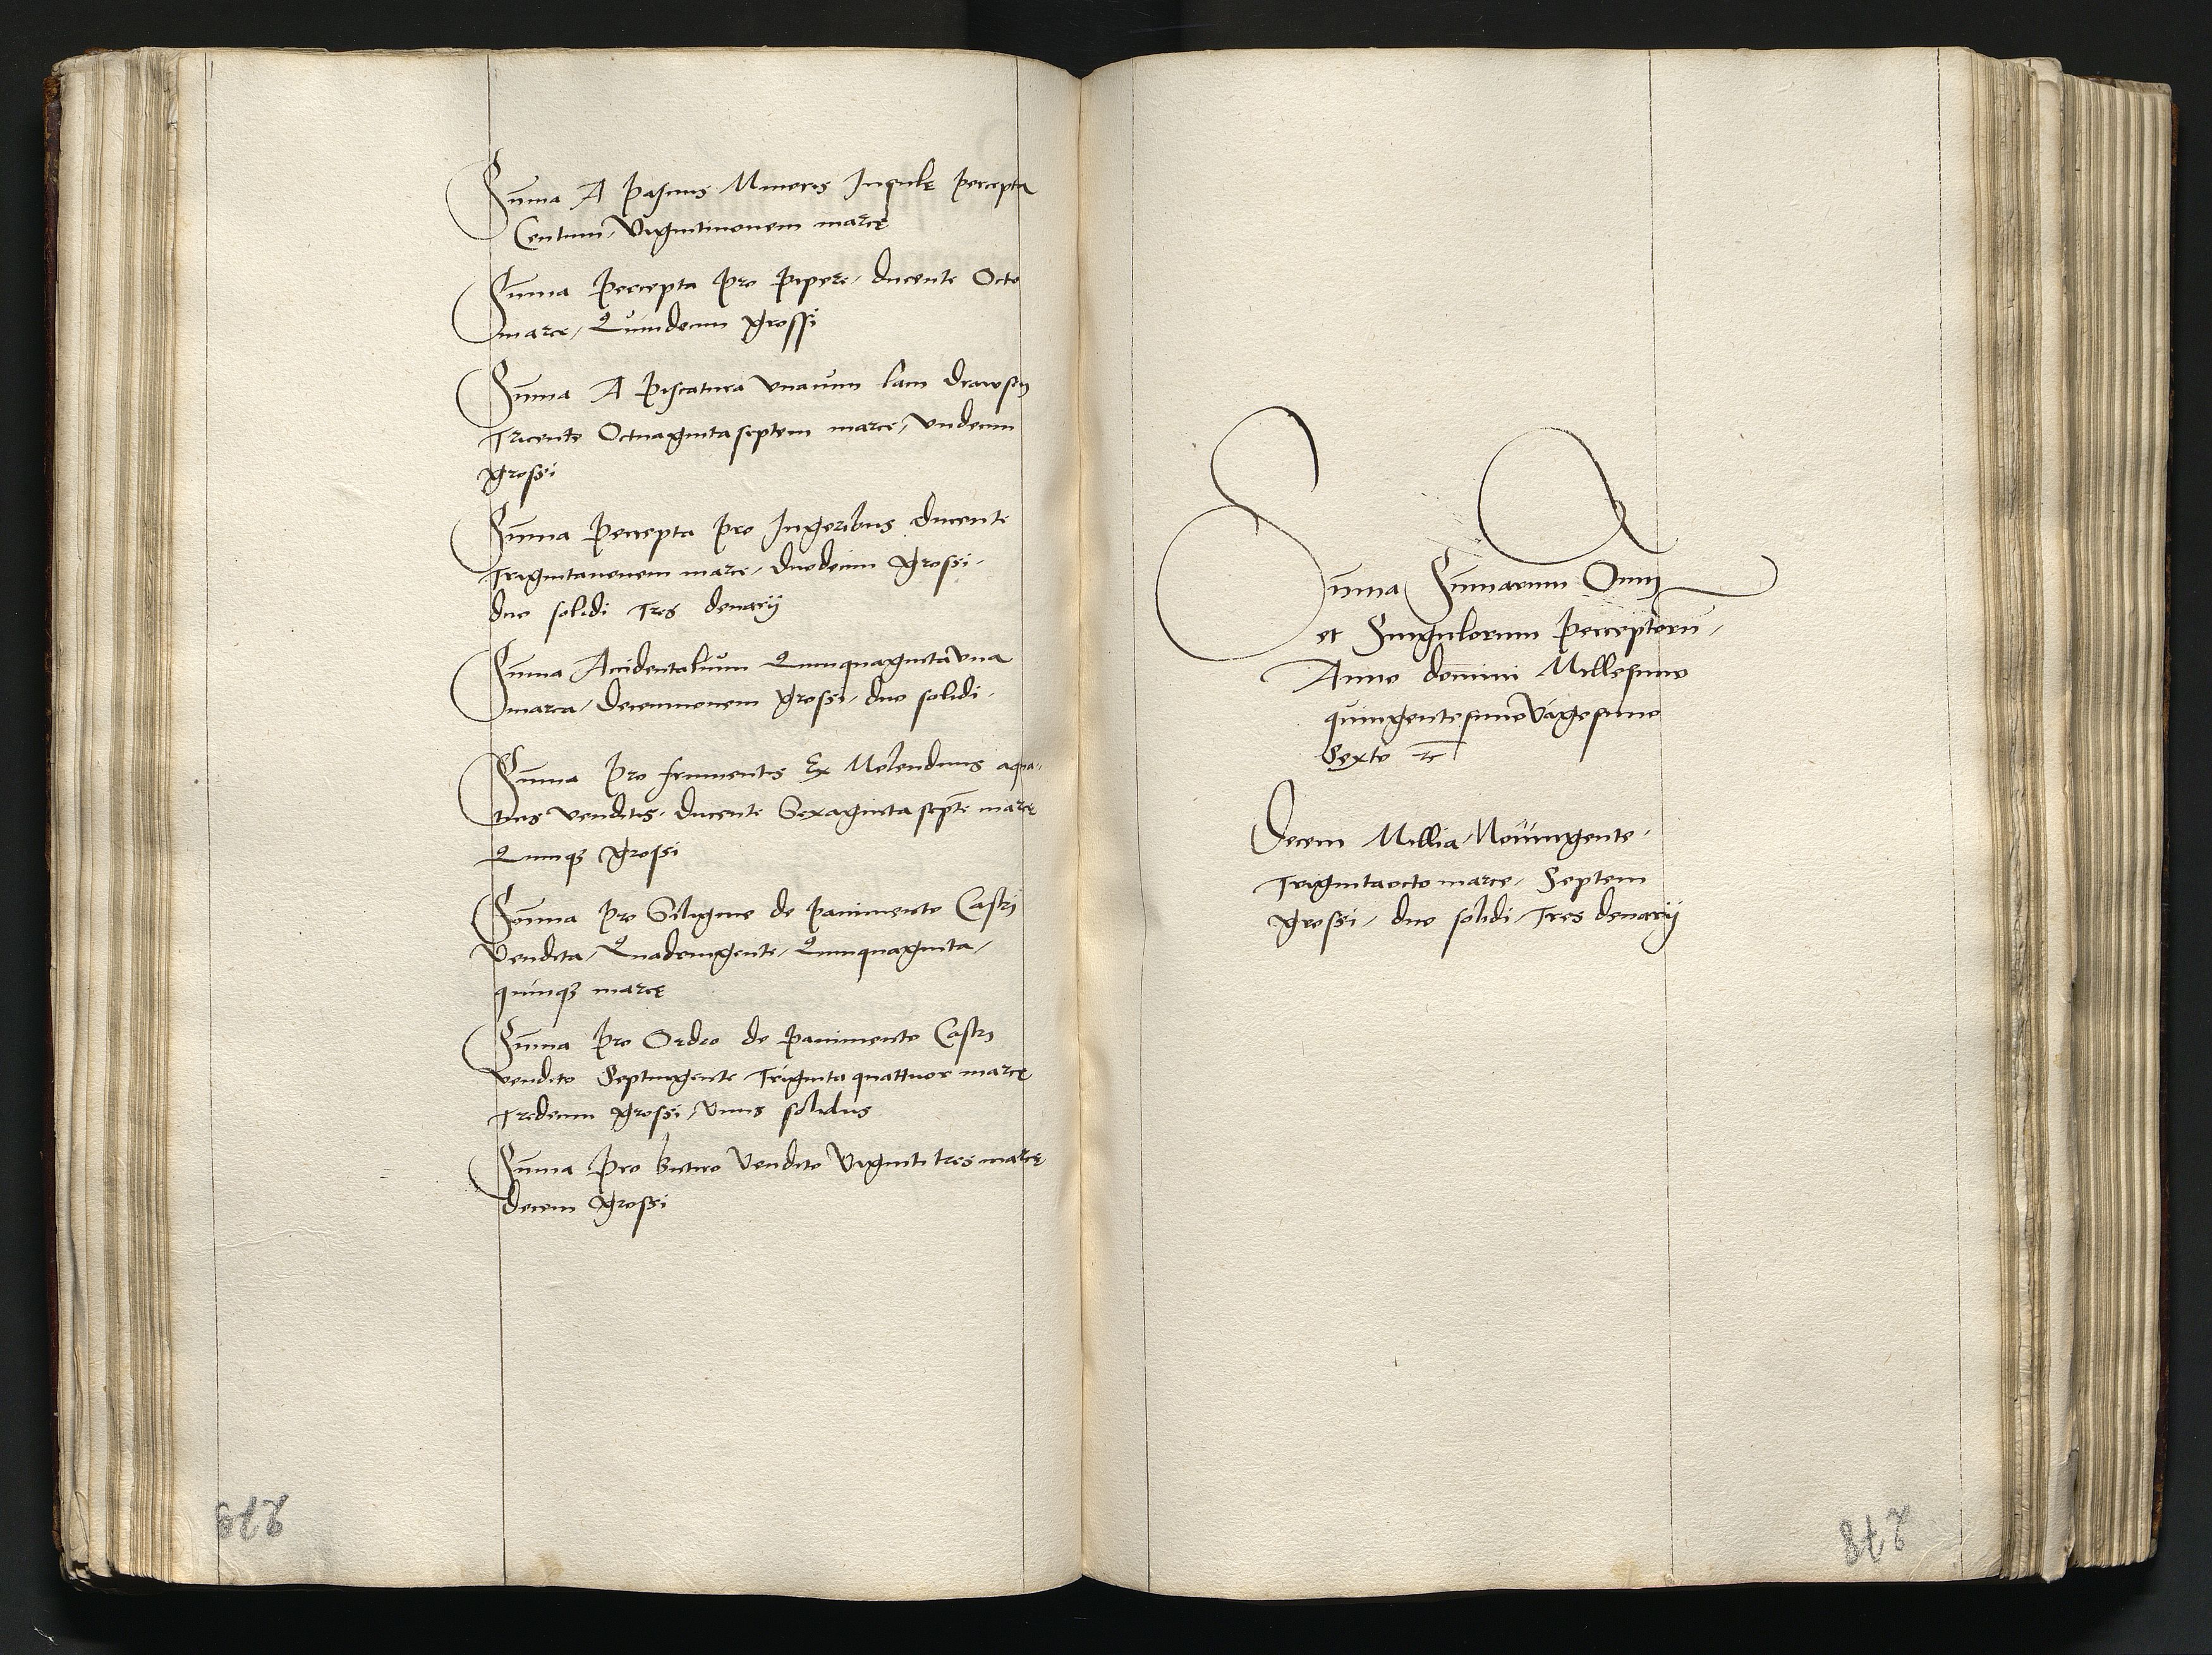 Sum̄a A Pasimis Minoris Insulę Percepta
Centum, Vigintinonem marcę
Sum̄a Percepta Pro Pipere, ducente Octo
marce, Quindecim Grossi
Sum̄a A Piscatura lacum drawsen
Tricente Octuaginta septem marce, Undecim
Grossi
Sum̄a Percepta Pro Iugeribus ducente
Trigintanovem marce, duodecim Grossi,
duo solidi Tres denarij
Sum̄a Accidentalium Quinquaginta una
marca, decemnovem Grossi, duo solidi,
Sum̄a Pro frumentis Ex Molendinis aqua-
ticis venditis, ducente Sexaginta septē marcę
Quinqȝ Grossi
Som̄a Pro Siligine de Pavimento Castri
Vendita, Quadringente, Quinquaginta,
quinqȝ marcę
Sum̄a Pro Ordeo de Pavimento Castri
vendito Septingente Triginta quattuor marcę
Tredecim Grossi, Unus solidus
Sum̄a Pro butiro Vendito Viginti tres marcę
decem Grossi
279
Sum̄a Sum̄arum Omn̄
et Singulorum Perceptorū,
Anno domini Millesimo
quingentesimo Vigesimo
Sexto ꝛc
Decem Millia, Noningente,
Triginta octo marce, Septem
Grossi, duo solidi, Tres denarij
278